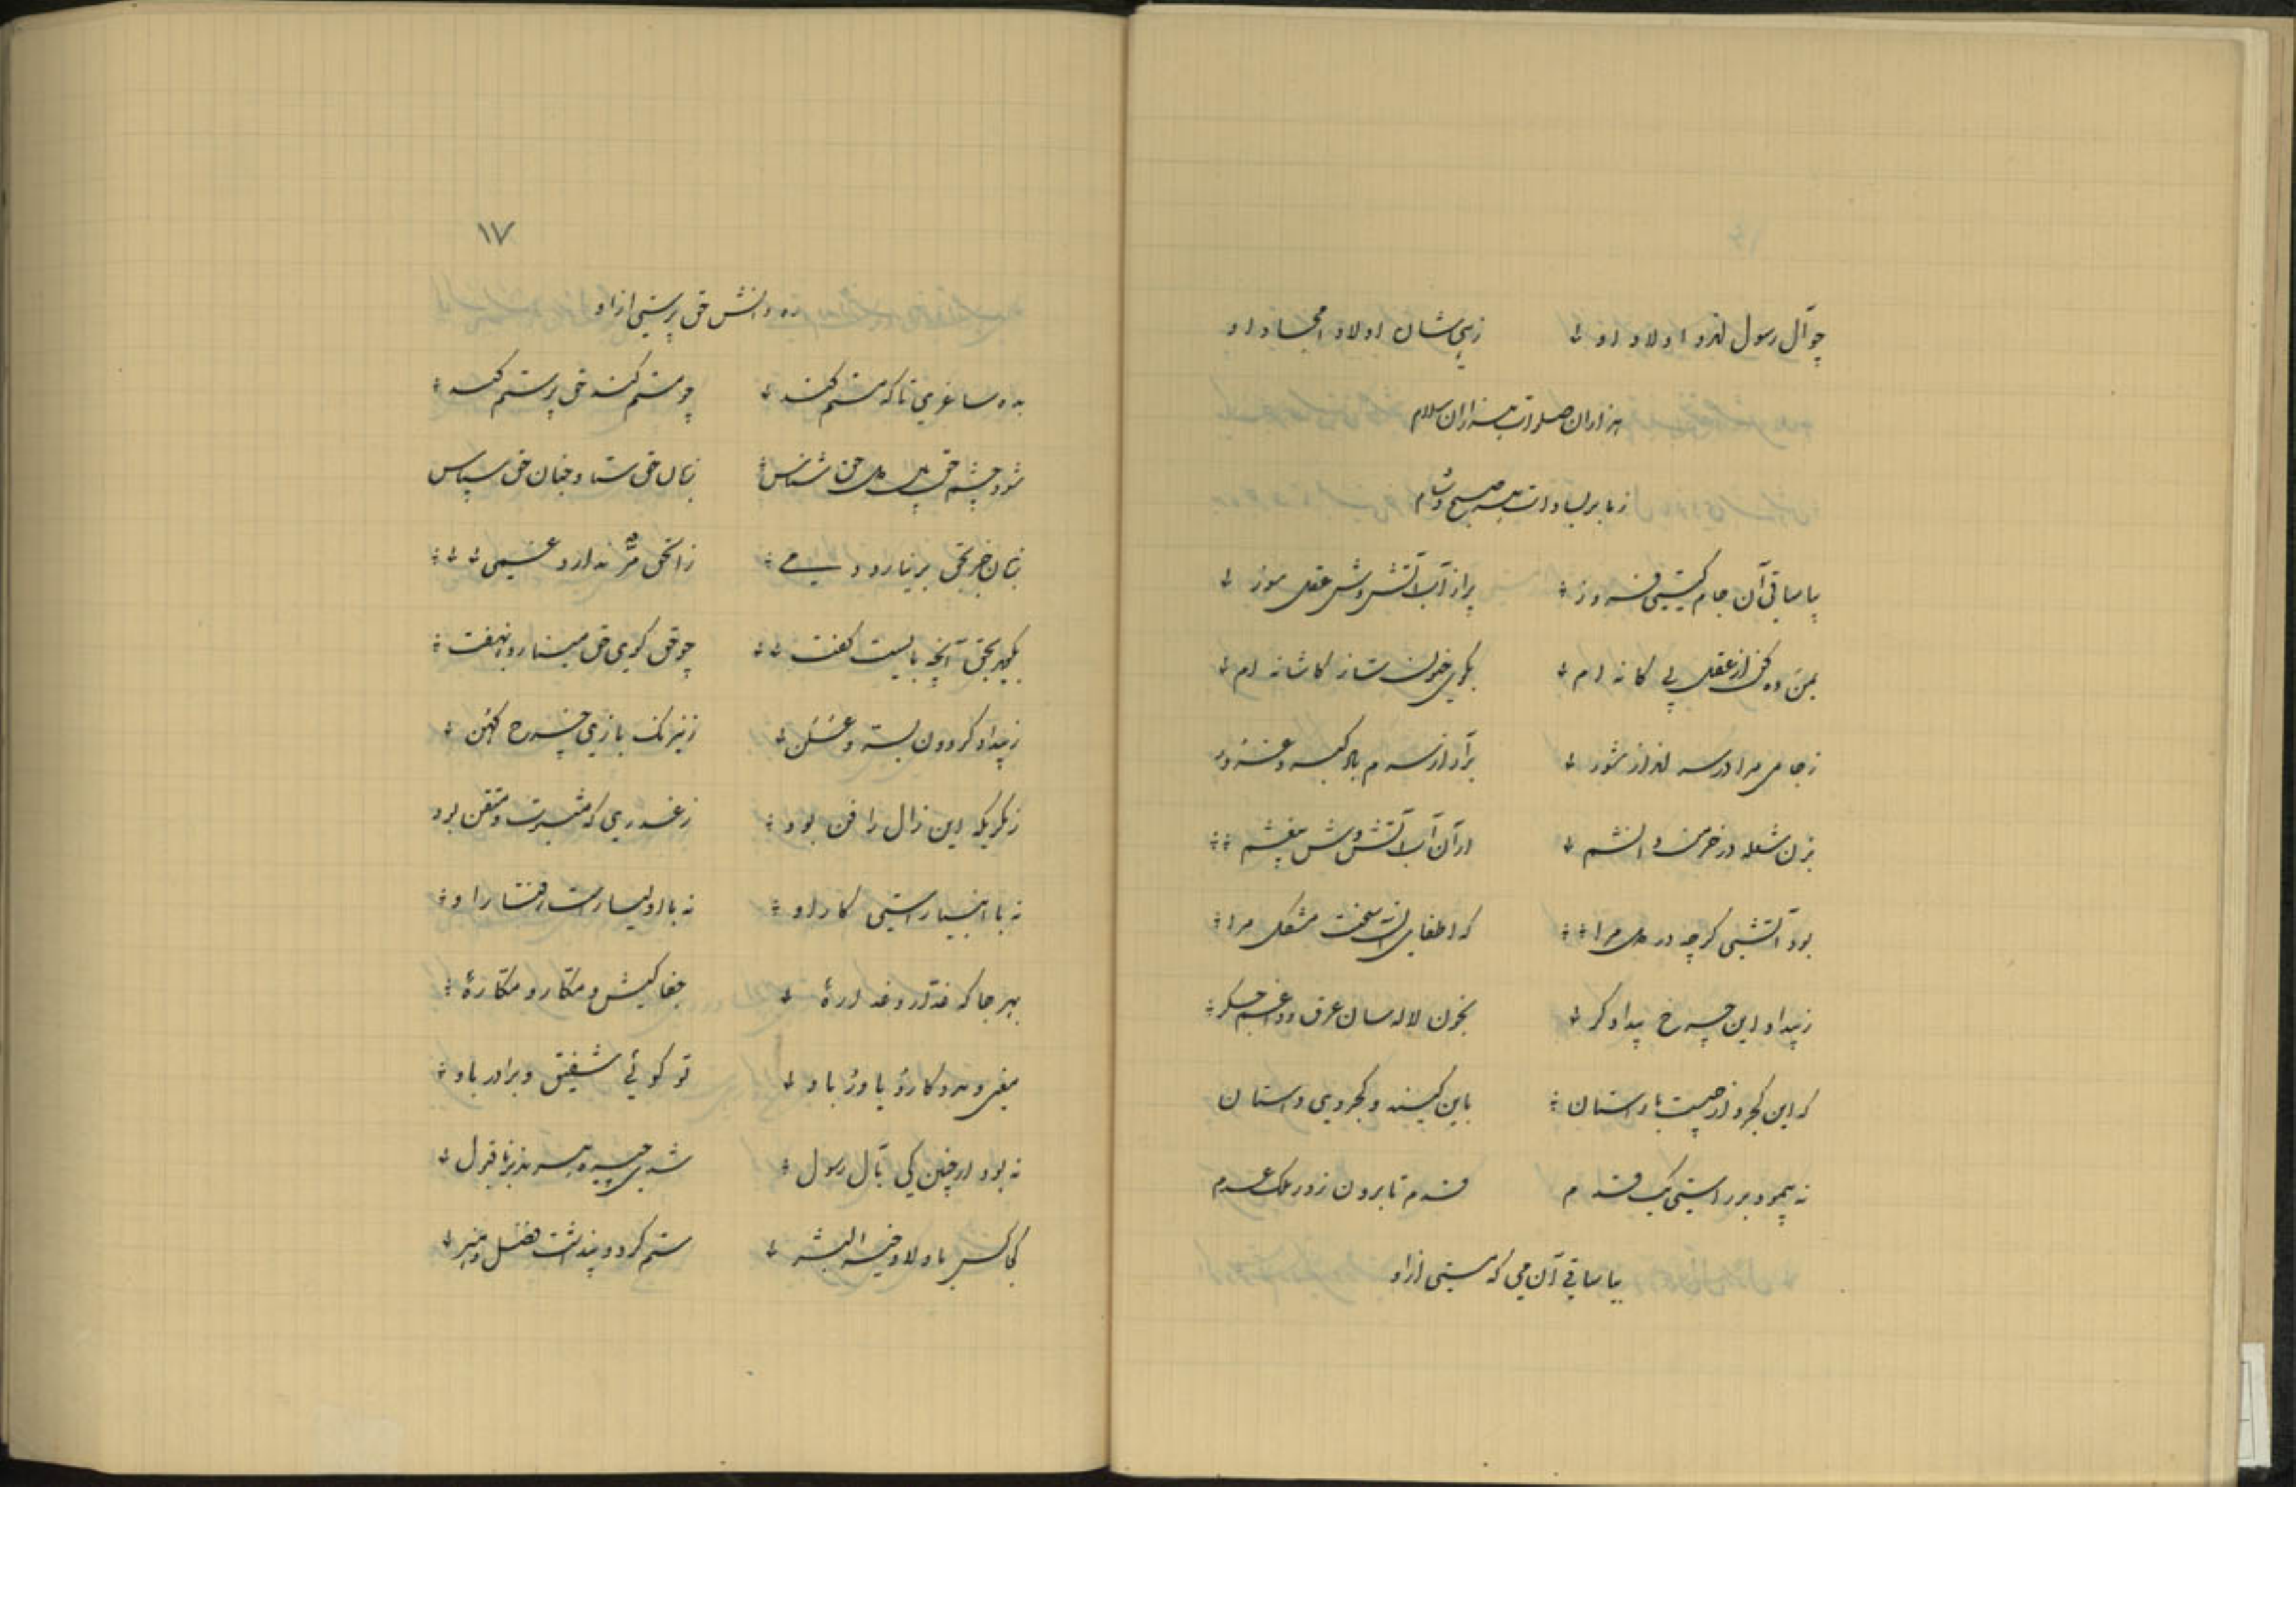 چو آل رسول اند و اولاد او زهی شان اولاد امجاد او
هزاران صلوات هزاران سلام
ز ما بر بساداتت هر صبح و شام
بیا ساقی آن جام گیتی فروز پر از آب آتش وش عقل سوز
بمن ده کن از عقل بی گانه ام بکوی خون ساز کاشانه ام
ز جامی مرا در سر انداز شور برآور از سرم باد کبر و غرور
بزن شعله در خرمن دانشم از آن آب آتش وش بیغشم
بود آتشی گرچه در دل مرا که اطفای آن سخت مشکل مرا
ز بیداد این چرخ بیدادگر بخون لاله سان غرق و داغم جگر
که این کجرو از چیست با راستان باین کینه و کجروی داستان
نه پیمود بر راستی یک قدم قدم تا برون زد ز ملک عدم
بیا ساقی آن می که مستی از او
۱۷
ره دانش حق پرستی از او
بده ساغری تا که مستم کند چو مستم کند حق پرستم کند
شود چشم حق بین دل حق شناس زبان حق ستا و جنان حق سپاس
زبان جز بحق برنیارد دمی ز الحق مر ندارد غمی
بگوید بحق آنچه بایست گفت چو حق گوی حق مینیارد نهفت
ز بیداد گردون بسته دهن ز نیرنگ بازی چرخ کهن
ز مکریکه این زال را فن بود ز غدری که متقن بود
نه با انبیا راستی کار او نه با اولیا راست رفتار او
بهر جا که غدار و غداره جفا کیش و مکار و مکاره
معین و مددکار و یاور باو تو گوئی شفیق و برادر باو
نه بود ار چنین کی بآل رسول شدی چیره هر
کجا کس باولاد خیر البشر ستم کرد و پنداشت فضل و هنر